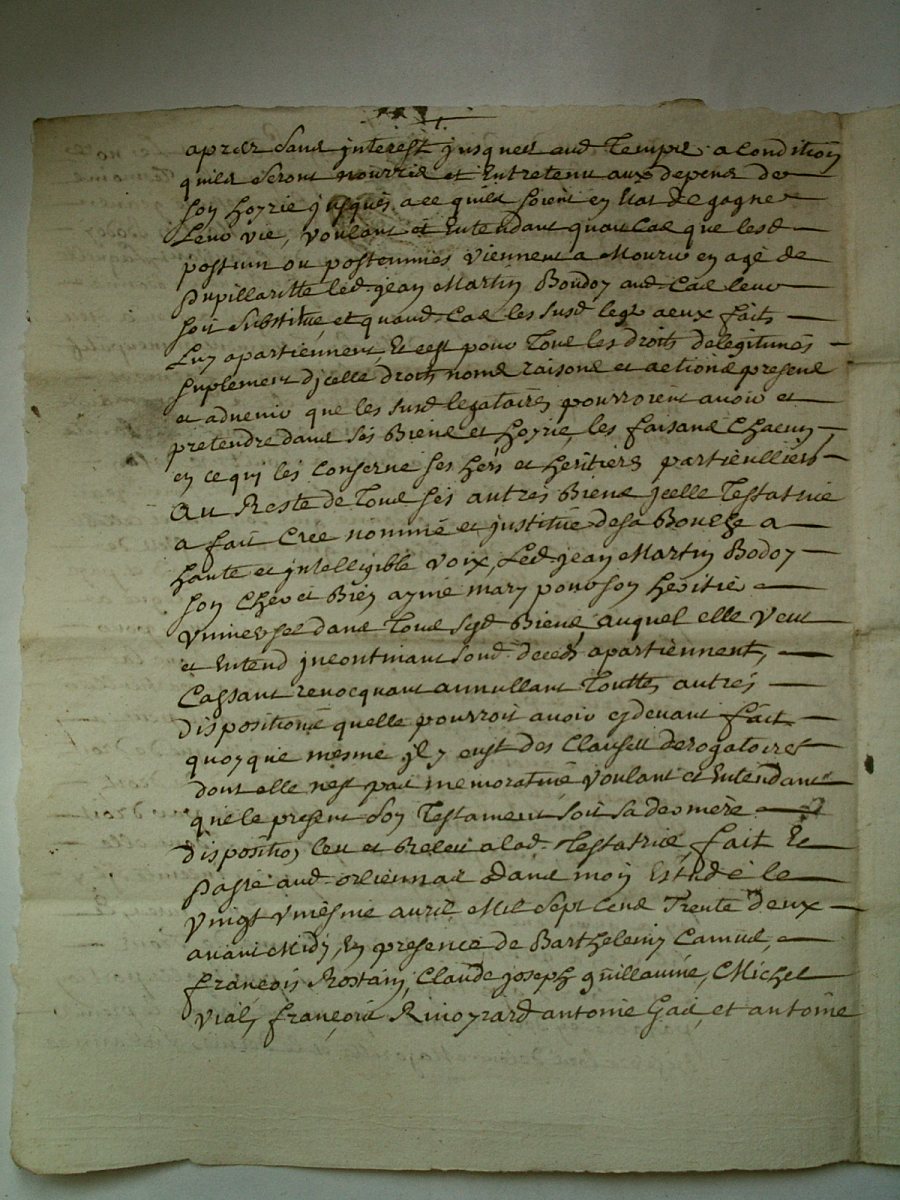 apres sans jnterest jusques aud temps a condition
quils seront nourris et Entretenu aux depens de
son hoyrie jusques a ce quils soient en Etat de gagner
Leur vie, voulant et Entendant quau cas que lesd
postum ou postennies viennent a Mourir en age de
pupillaritte led jean Martin Boudoy aud. Cas leur
soit substitue et quaud. Cas les susd legz a eux faits
Luy apartiennent, Et c'est pour Tous les droits de legitimes
suplement djcelle droits noms raisons et actions presens
et advenir que les susd legataires pourroient avoir et
pretendre dans ses Biens et hoyrie, les faisans Chacun,
en ce quj les conserne ses hers et heritiers particulliers
Au Reste de Tous ses autres Biens jcelle Testatrice
a fait Cree nommé et jnstitué de sa Bouche a
haute et jntelligible voix, Led. jean Martin Bodoy
son Cher et Bien aymé mary pour son heritier
vniversel dans Tous sesd Biens, auquel elle veut
et Entend jncontinant sond. deceds apartiennent,
Cassant revocquant annullant Touttes autres
dispositions quelle pourroit avoir cydevant fait
quoyque mesme jl y eust des Clauses derogatoires
dont elle nest pas memorative voulant et Entendant
que le present son Testament soit sa dernière
disposition leu et Releu a lad. Testatrice, fait Et
Passé aud. orliennas dans mon Estude le
vingt vniesme avril Mil sept cens Trente deux
avant Midy, En presence de Barthelemy Camus,
françois Rostain, Claude joseph guillaume, Michel
vial, françois Rivoyrard antoine Gas, et antoine